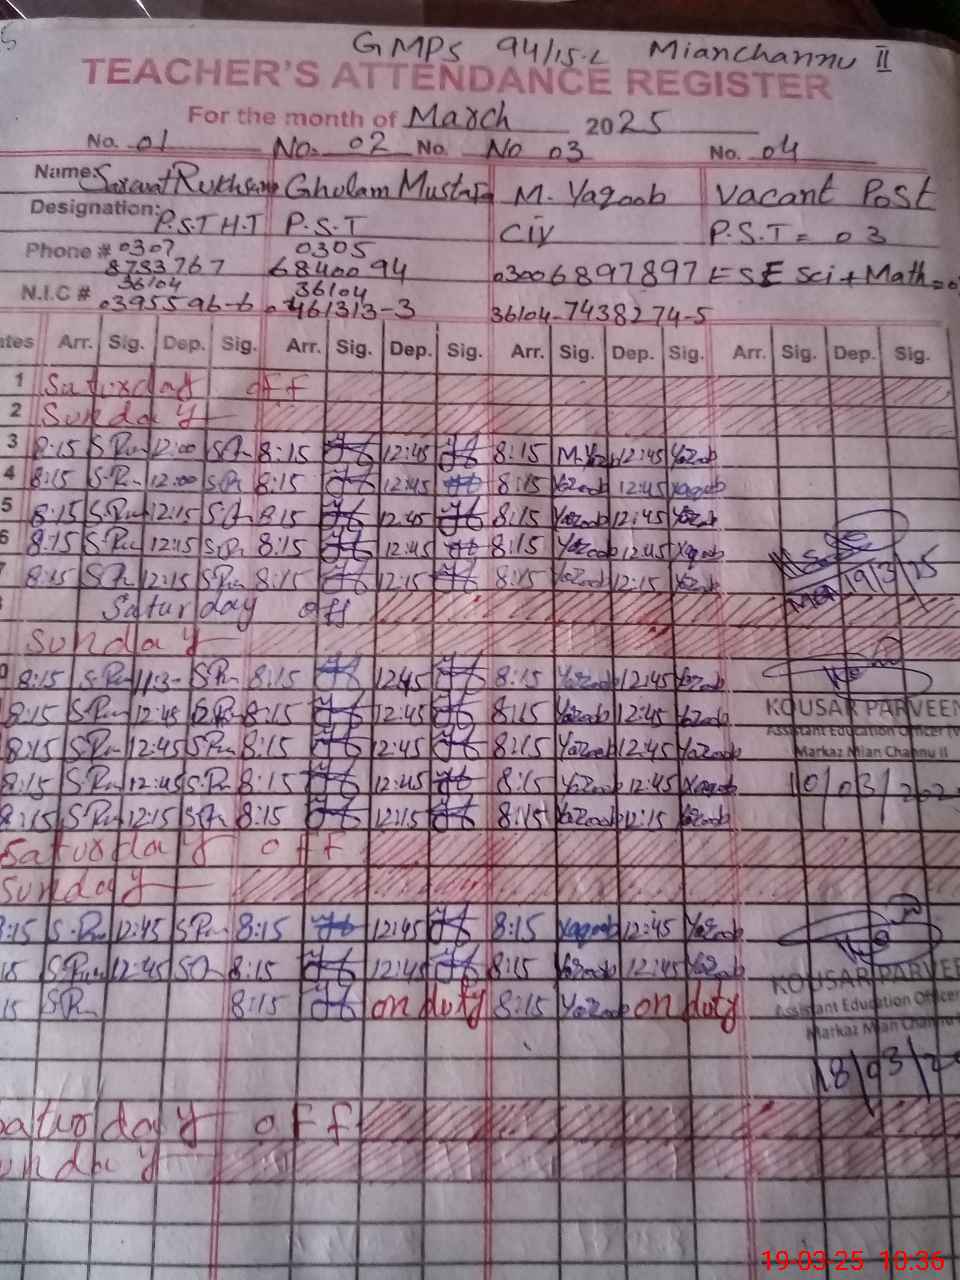 GMPS 94/15-L Mianchannu II
TEACHER'S ATTENDANCE REGISTER
For the month of March 2025
No. 01 No. 02 No. No 03 No. 04
Name: Ghulam Mustafa M. Yaqoob Vacant Post
Designation: P.S.T H.T P.S.T CIV P.S.T = 03
Phone # 0307 0305
8783767 6840094 03006897897 ESE Sci + Math =
N.I.C # 36104 36104
0395596-6 0461313-3 36104-7438274-5
Arr. Sig. Dep. Sig. Arr. Sig. Dep. Sig. Arr. Sig. Dep. Sig. Arr. Sig. Dep. Sig.
1 Saturday off
2 Sunday
3 8:15 12:00 8:15 12:45 8:15 12:45 Yaqoob
4 8:15 12:00 8:15 12:45 8:15 Yaqoob 12:45 Yaqoob
5 8:15 12:15 8:15 12:45 8:15 Yaqoob 12:45 Yaqoob
6 8:15 12:15 8:15 12:45 8:15 Yaqoob 12:45 Yaqoob
8:15 12:15 8:15 12:15 8:15 Yaqoob 12:15 Yaqoob
19/3/25
Saturday off
Sunday
8:15 8:15 12:45 8:15 Yaqoob 12:45 Yaqoob
8:15 12:45 8:15 12:45 8:15 Yaqoob 12:45 Yaqoob
KOUSAR PARVEEN
Assistant Education Officer
8:15 12:45 8:15 12:45 8:15 Yaqoob 12:45 Yaqoob
Markaz Mian Channu II
8:15 12:45 8:15 12:45 8:15 Yaqoob 12:45 Yaqoob
10/03/202
8:15 12:15 8:15 12:15 8:15 Yaqoob 12:15 Yaqoob
Saturday off
Sunday
:15 12:45 8:15 12:45 8:15 Yaqoob 12:45 Yaqoob
15 12:45 8:15 12:45 8:15 Yaqoob 12:45 Yaqoob
KOUSAR PARVEE
15 8:15 on duty 8:15 Yaqoob on duty
Assistant Education Officer
Markaz Mian Channu
18/03/2
aturday off
unday
19-03-25 10:36